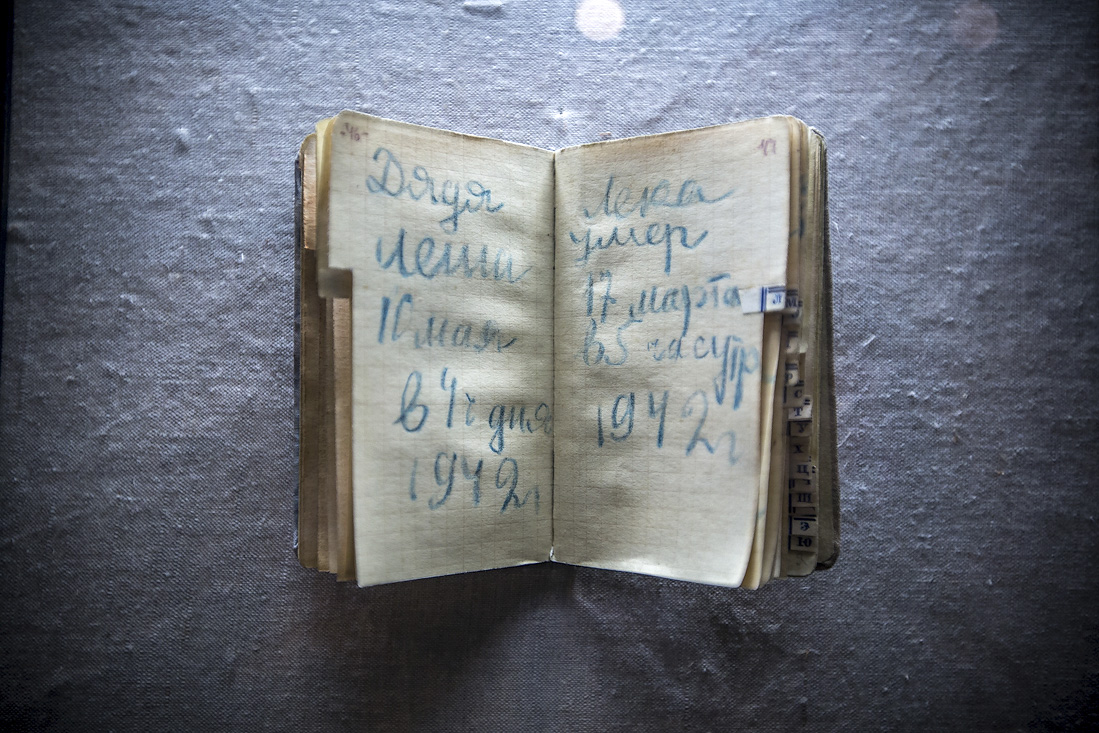 Дядя
Леша
10 мая
в 4ч дня
1942г
Лека
умер
17 марта
в 5 часутр
1942г
Л М
Р
С
Т
У
Х
Ц
Ш
Э
Ю